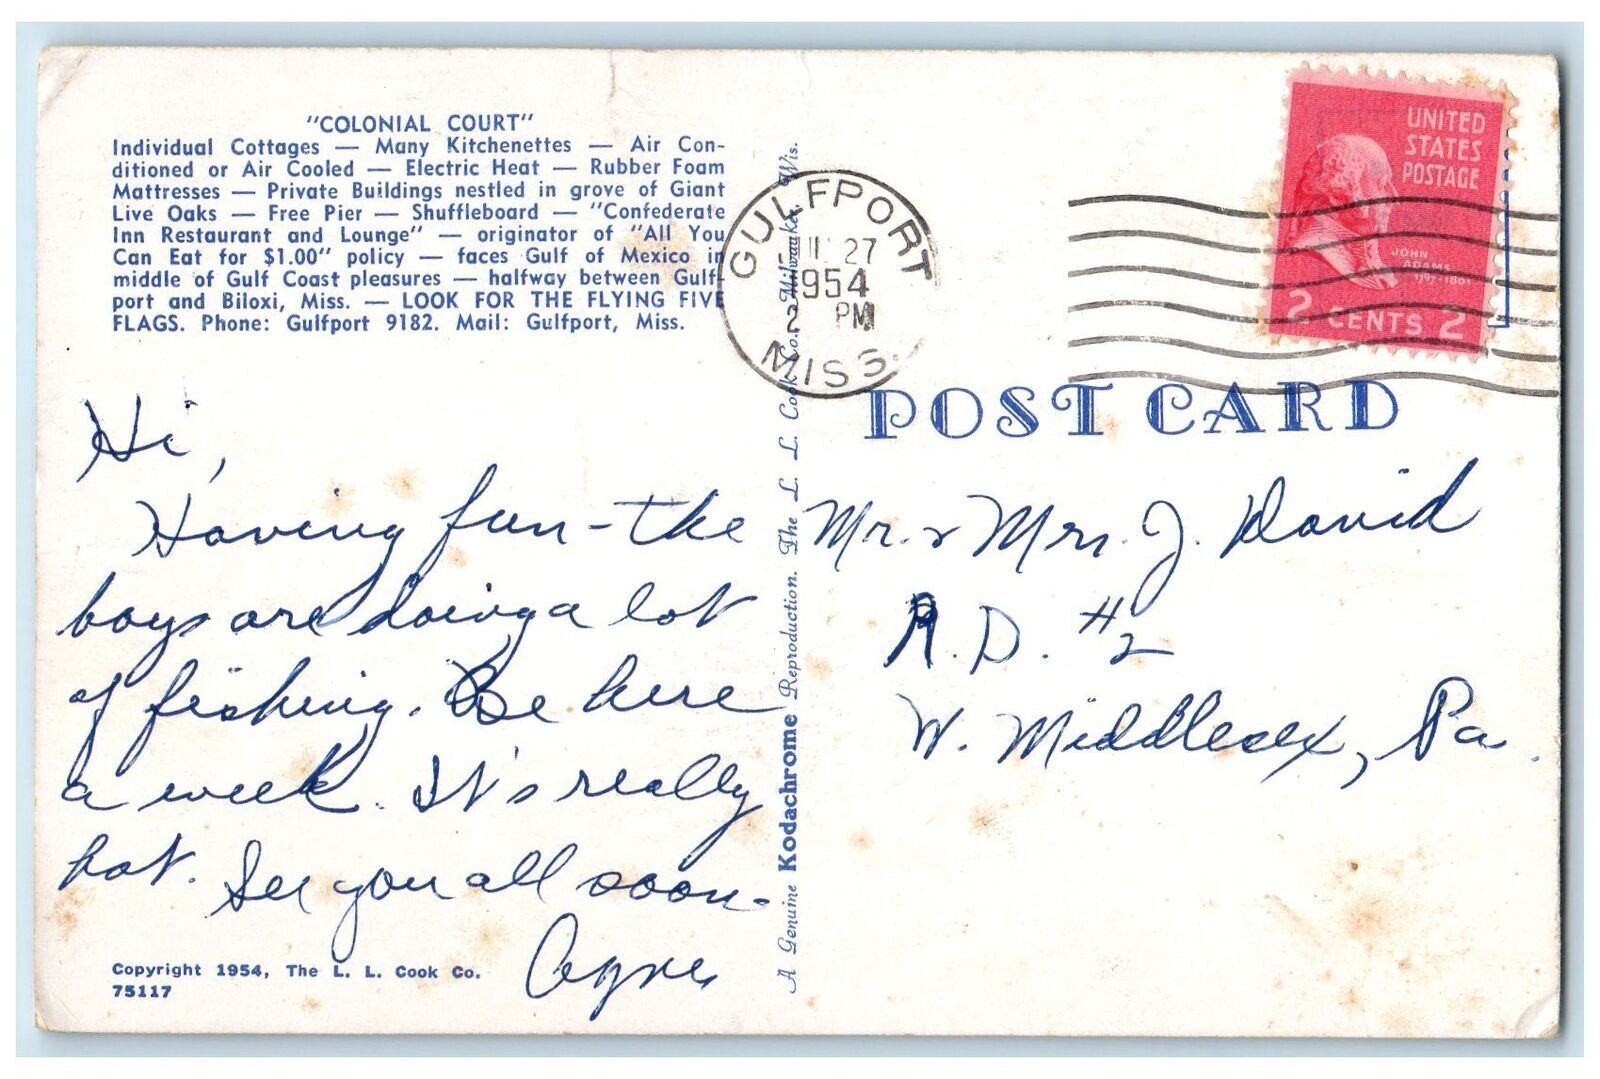 "COLONIAL COURT"
Individual Cottages — Many Kitchenettes — Air Con-
ditioned or Air Cooled — Electric Heat — Rubber Foam
Mattresses — Private Buildings nestled in grove of Giant
Live Oaks — Free Pier — Shuffleboard — "Confederate
Inn Restaurant and Lounge" — originator of "All You
Can Eat for $1.00" policy — faces Gulf of Mexico in
middle of Gulf Coast pleasures — halfway between Gulf-
port and Biloxi, Miss. — LOOK FOR THE FLYING FIVE
FLAGS. Phone: Gulfport 9182. Mail: Gulfport, Miss.
Hi,
Having fun - the
boys are doing a lot
of fishing. Be here
a week. It's really
hot. See you all soon -
Copyright 1954, The L. L. Cook Co.
75117
A Genuine Kodachrome Reproduction. The L. L. Cook Co. Milwaukee, Wis.
GULFPORT
27
1954
2 PM
MISS.
UNITED
STATES
POSTAGE
JOHN
ADAMS
1797-1801
2 CENTS 2
POST CARD
Mr. & Mrs. J. David
R.D. #2
W. Middlesex, Pa.